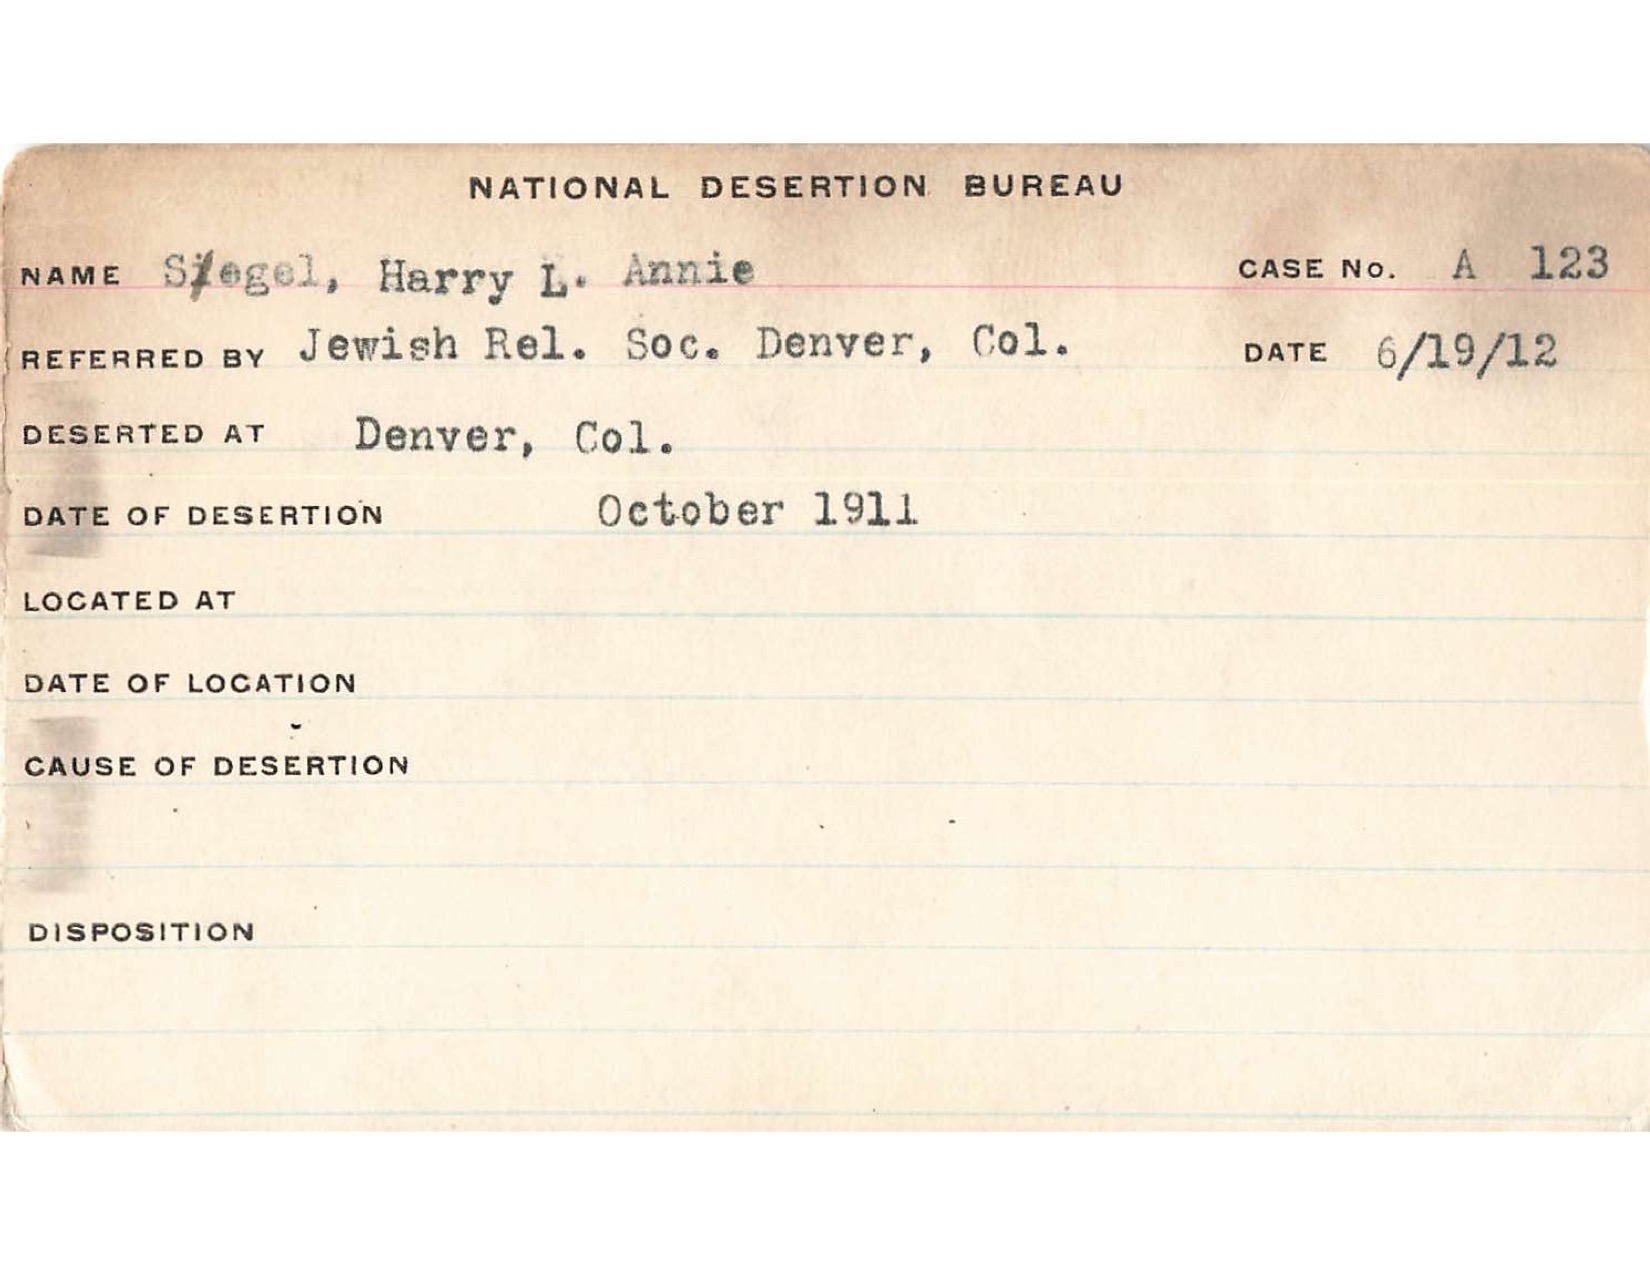 NATIONAL DESERTION BUREAU
NAME Siegel, Harry L. Annie CASE No. A 123
REFERRED BY Jewish Rel. Soc. Denver, Col. DATE 6/19/12
DESERTED AT Denver, Col.
DATE OF DESERTION October 1911
LOCATED AT
DATE OF LOCATION
CAUSE OF DESERTION
DISPOSITION